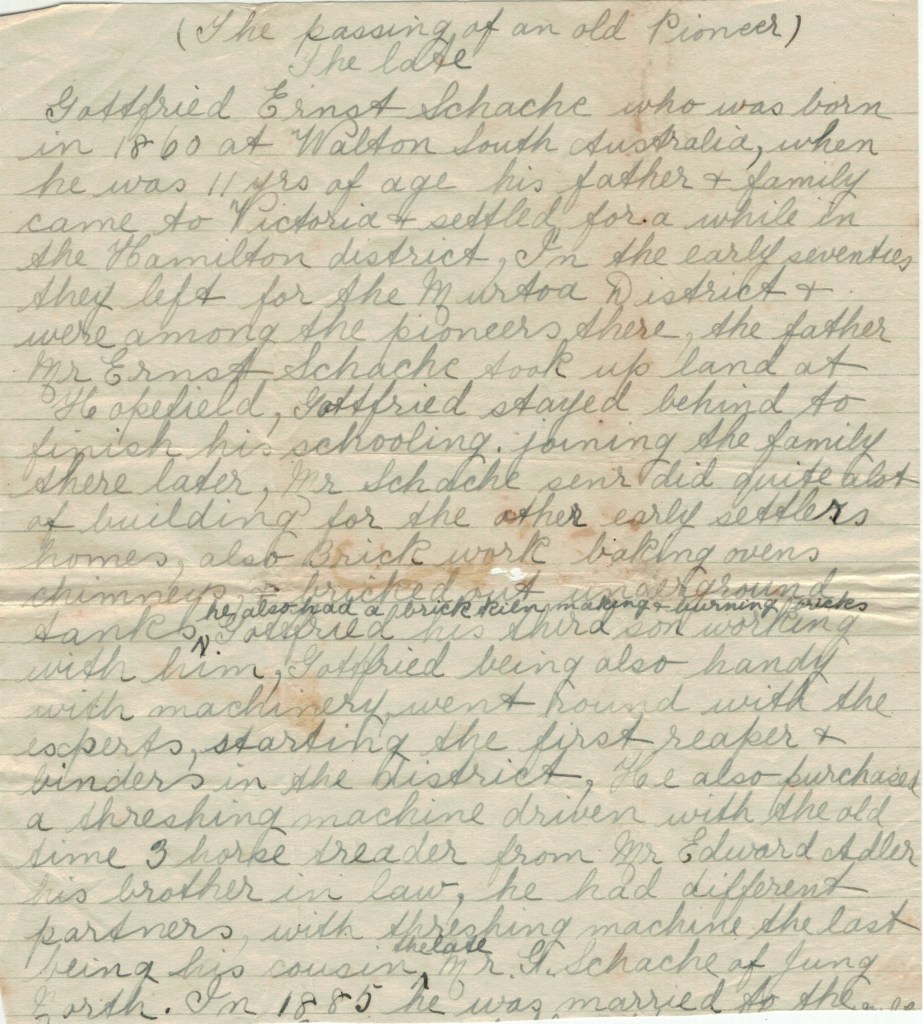 (The passing of an old Pioneer)
The late
Gottfried Ernst Schache who was born
in 1860 at Walton South Australia, when
he was 11 yrs of age his father & family
came to Victoria & settled for a while in
the Hamilton district, In the early seventies
they left for the Murtoa District &
were among the pioneers there, the father
Mr Ernst Schache took up land at
Hopefield, Gottfried stayed behind to
finish his schooling. joining the family
there later, Mr Schache senr did quite alot
of building for the other early settlers
homes, also Brick work baking ovens
chimneys & bricked out underground
he also had a brick kiln making & burning bricks
tanks, Gottfried his third son working
with him, Gottfried being also handy
with machinery, went round with the
experts, starting the first reaper &
binders in the district, He also purchased
a threshing machine driven with the old
time 3 horse treader from Mr Edward Adler
his brother in law, he had different
partners, with threshing machine the last
the late
being his cousin Mr. G. Schache of Jung
North. In 1885 he was married to the